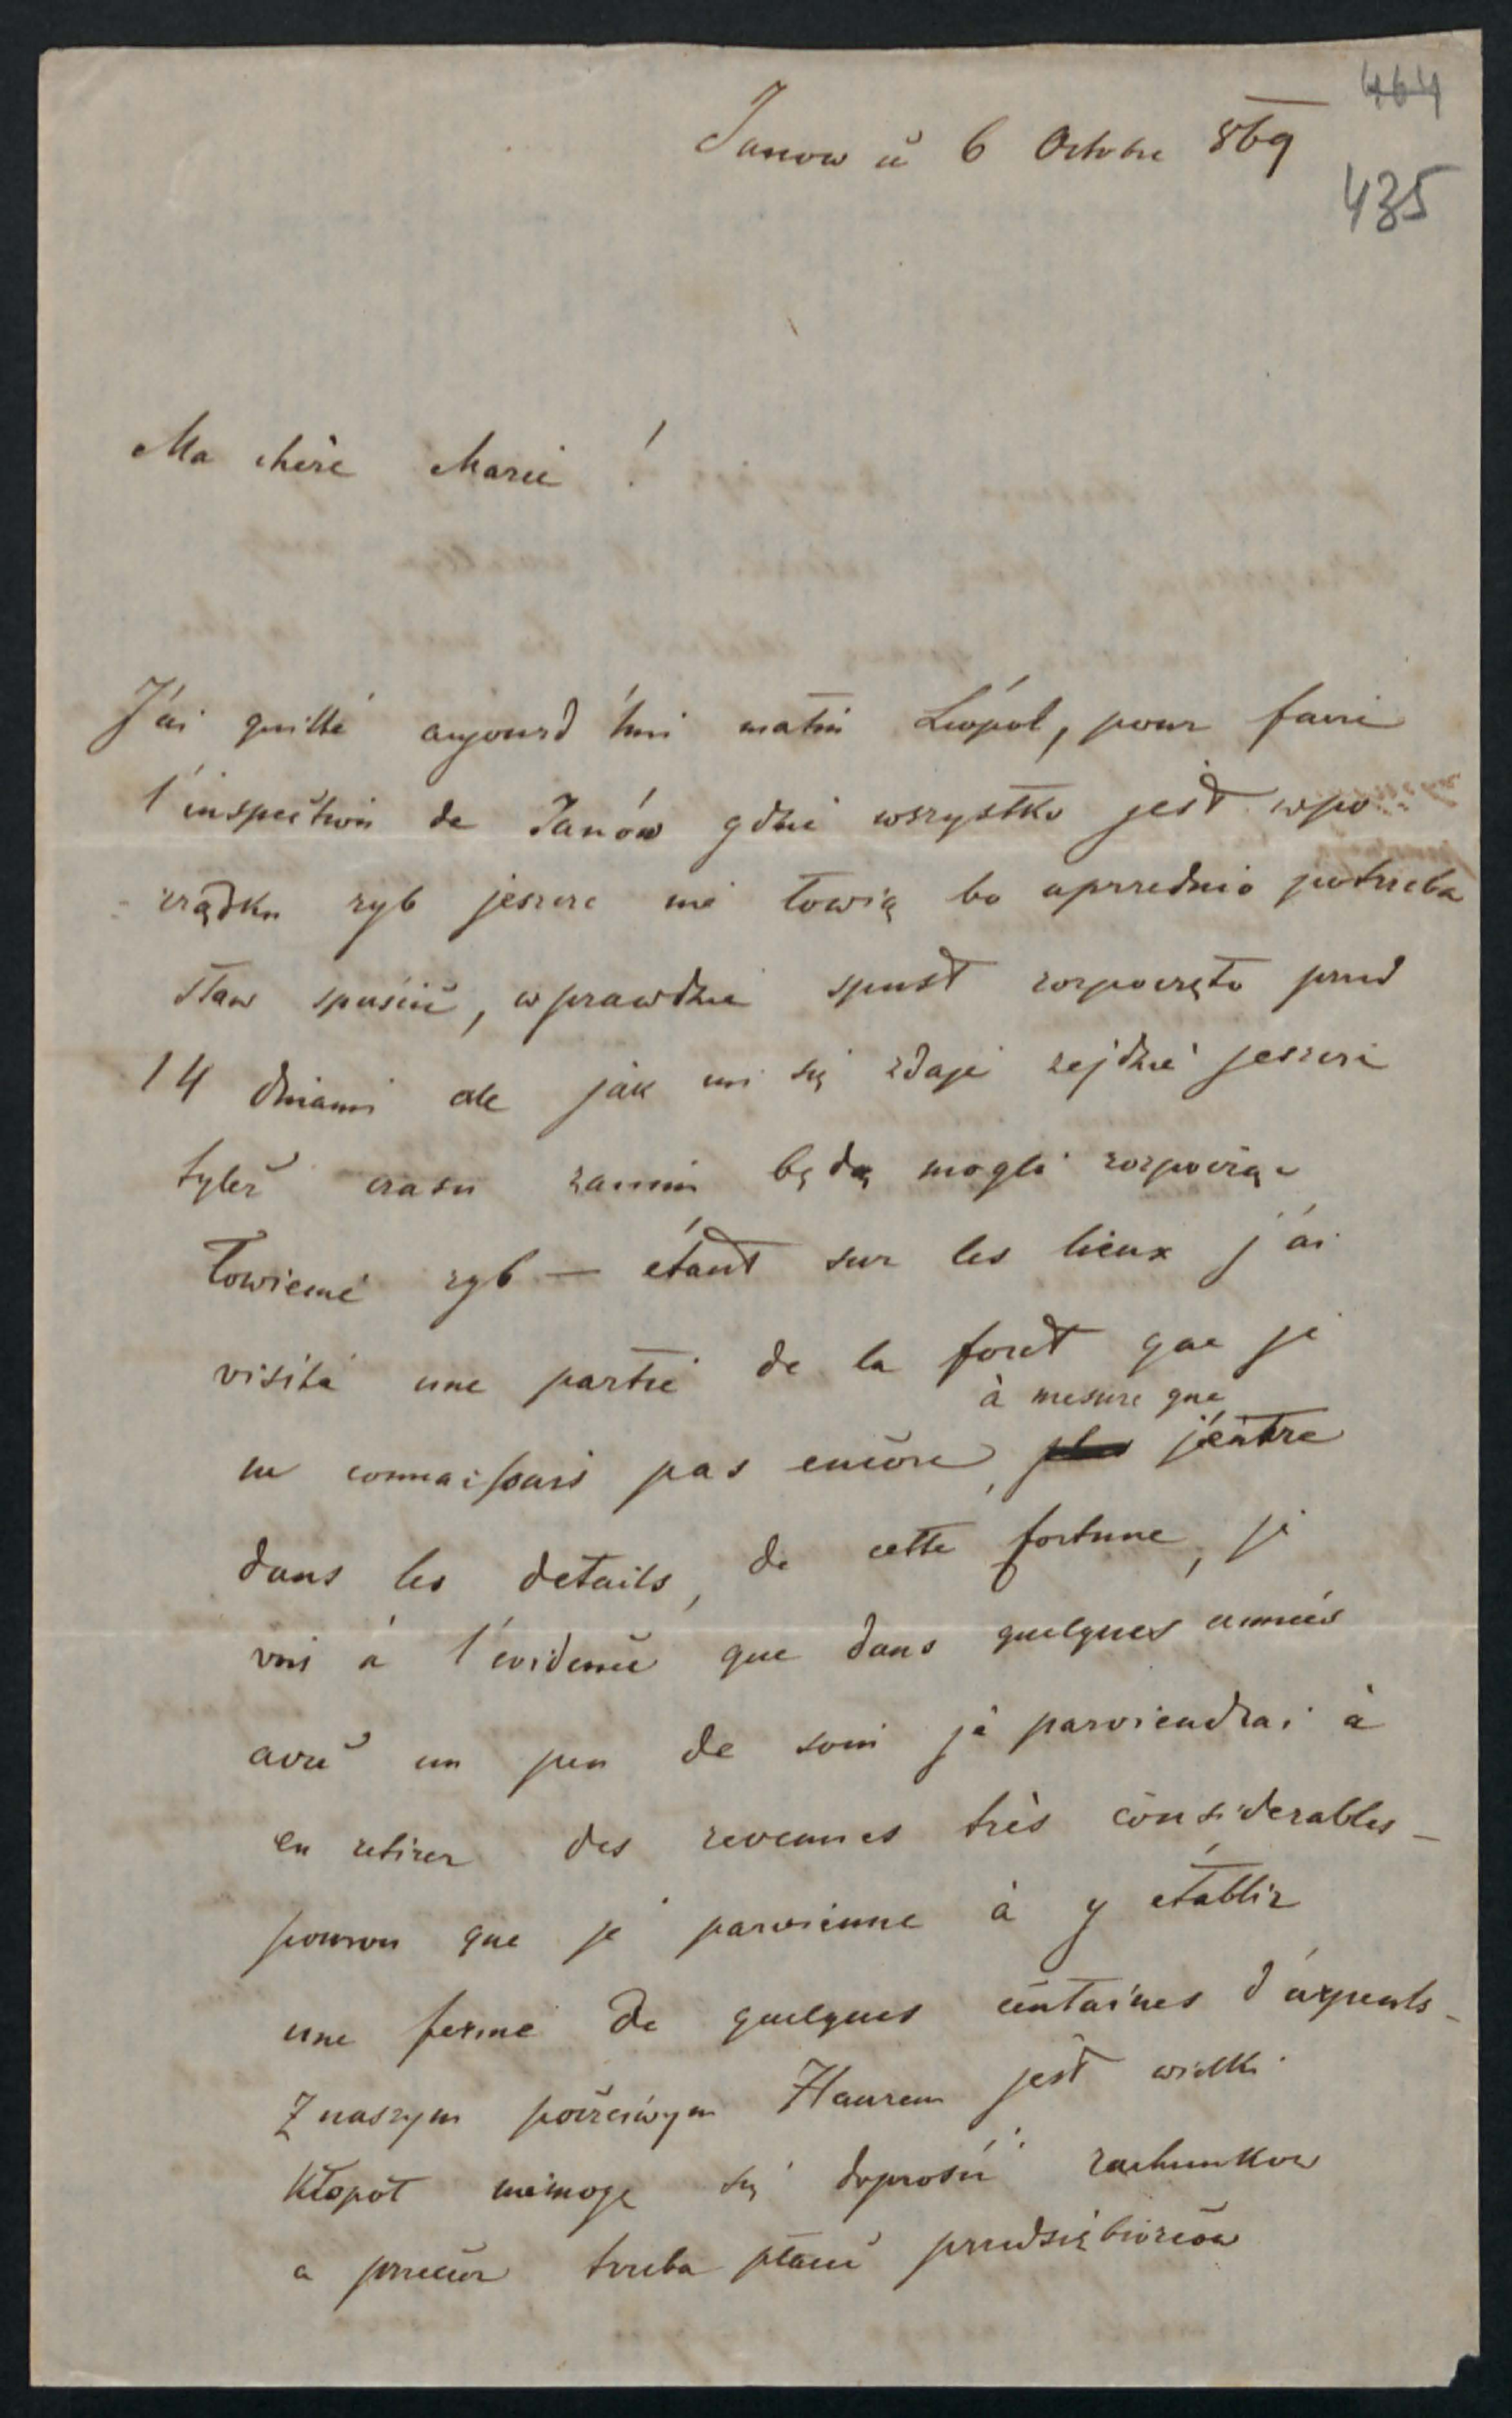 464
Janow ce 6 Octobre 869
435
Ma chère Marie !
J'ai quitté aujourd'hui matin Léopol, pour faire
l'inspection de Janów gdzie wszystko jest w po
rządku ryb jeszcze nie łowią bo uprzednio potrzeba
staw spuścić, wprawdzie spust rozpoczęto przed
14 dniami ale jak mi się zdaje zejdzie jeszcze
tyleż czasu zanim będą mogli rozpocząć
łowienie ryb — étant sur les lieux j'ai
visité une partie de la foret que je
à mesure que
ne connaissais pas encore, j'entre
dans les details, de cette fortune, je
vois à l'évidence que dans quelques années
avec un peu de soin je parviendrai à
en retirer des revenues très considerables —
pourvu que je parvienne à y établir
une ferme de quelques centaines d'arpents —
Z naszym poczciwym Haurem jest wielki
kłopot niemogę się doprosić rachunków
a przecież trzeba płacić przedsiębiorców